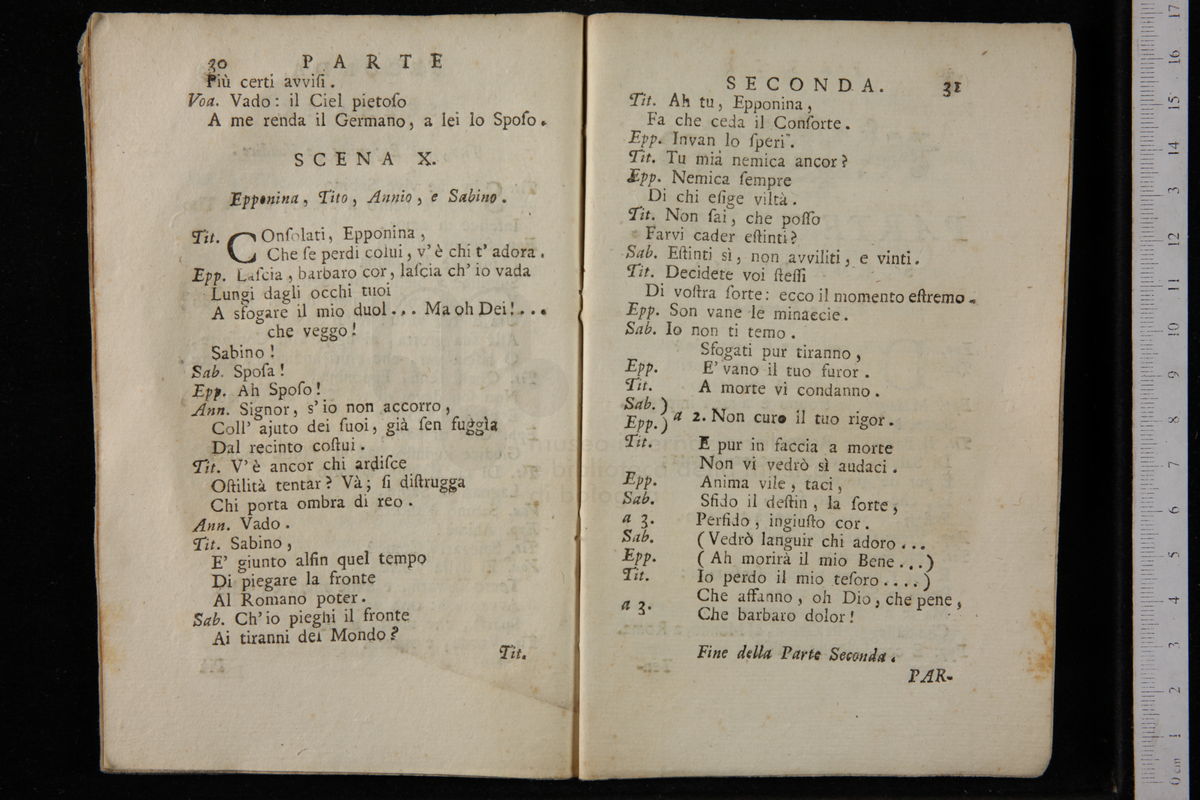 30 PARTE
Più certi avviſi.
Voa. Vado: il Ciel pietoſo
A me renda il Germano, a lei lo Spoſo.
SCENA X.
Epponina, Tito, Annio, e Sabino.
Tit. COnſolati, Epponina,
Che ſe perdi colui, v'è chi t'adora.
Epp. Laſcia, barbaro cor, laſcia ch'io vada
Lungi dagli occhi tuoi
A sfogare il mio duol... Ma oh Dei!...
che veggo!
Sabino!
Sab. Spoſa!
Epp. Ah Spoſo!
Ann. Signor, s'io non accorro,
Coll' ajuto dei ſuoi, già ſen fuggìa
Dal recinto coſtui.
Tit. V'è ancor chi ardiſce
Oſtilità tentar? Và; ſi diſtrugga
Chi porta ombra di reo.
Ann. Vado.
Tit. Sabino,
E' giunto alfin quel tempo
Di piegare la fronte
Al Romano poter.
Sab. Ch'io pieghi il fronte
Ai tiranni del Mondo?
Tit.
SECONDA. 31
Tit. Ah tu, Epponina,
Fa che ceda il Conſorte.
Epp. Invan lo ſperi.
Tit. Tu mia nemica ancor?
Epp. Nemica ſempre
Di chi eſige viltà.
Tit. Non ſai, che poſſo
Farvi cader eſtinti?
Sab. Eſtinti sì, non avviliti, e vinti.
Tit. Decidete voi ſteſſi
Di voſtra ſorte: ecco il momento eſtremo.
Epp. Son vane le minaccie.
Sab. Io non ti temo.
Sfogati pur tiranno,
Epp. E' vano il tuo furor.
Tit. A morte vi condanno.
Sab.)
Epp.) a 2. Non curo il tuo rigor.
Tit. E pur in faccia a morte
Non vi vedrò sì audaci.
Epp. Anima vile, taci,
Sab. Sfido il deſtin, la ſorte,
a 3. Perfido, ingiuſto cor.
Sab. (Vedrò languir chi adoro...
Epp. (Ah morirà il mio Bene...)
Tit. Io perdo il mio teſoro....)
a 3. Che affanno, oh Dio, che pene,
Che barbaro dolor!
Fine della Parte Seconda.
PAR-